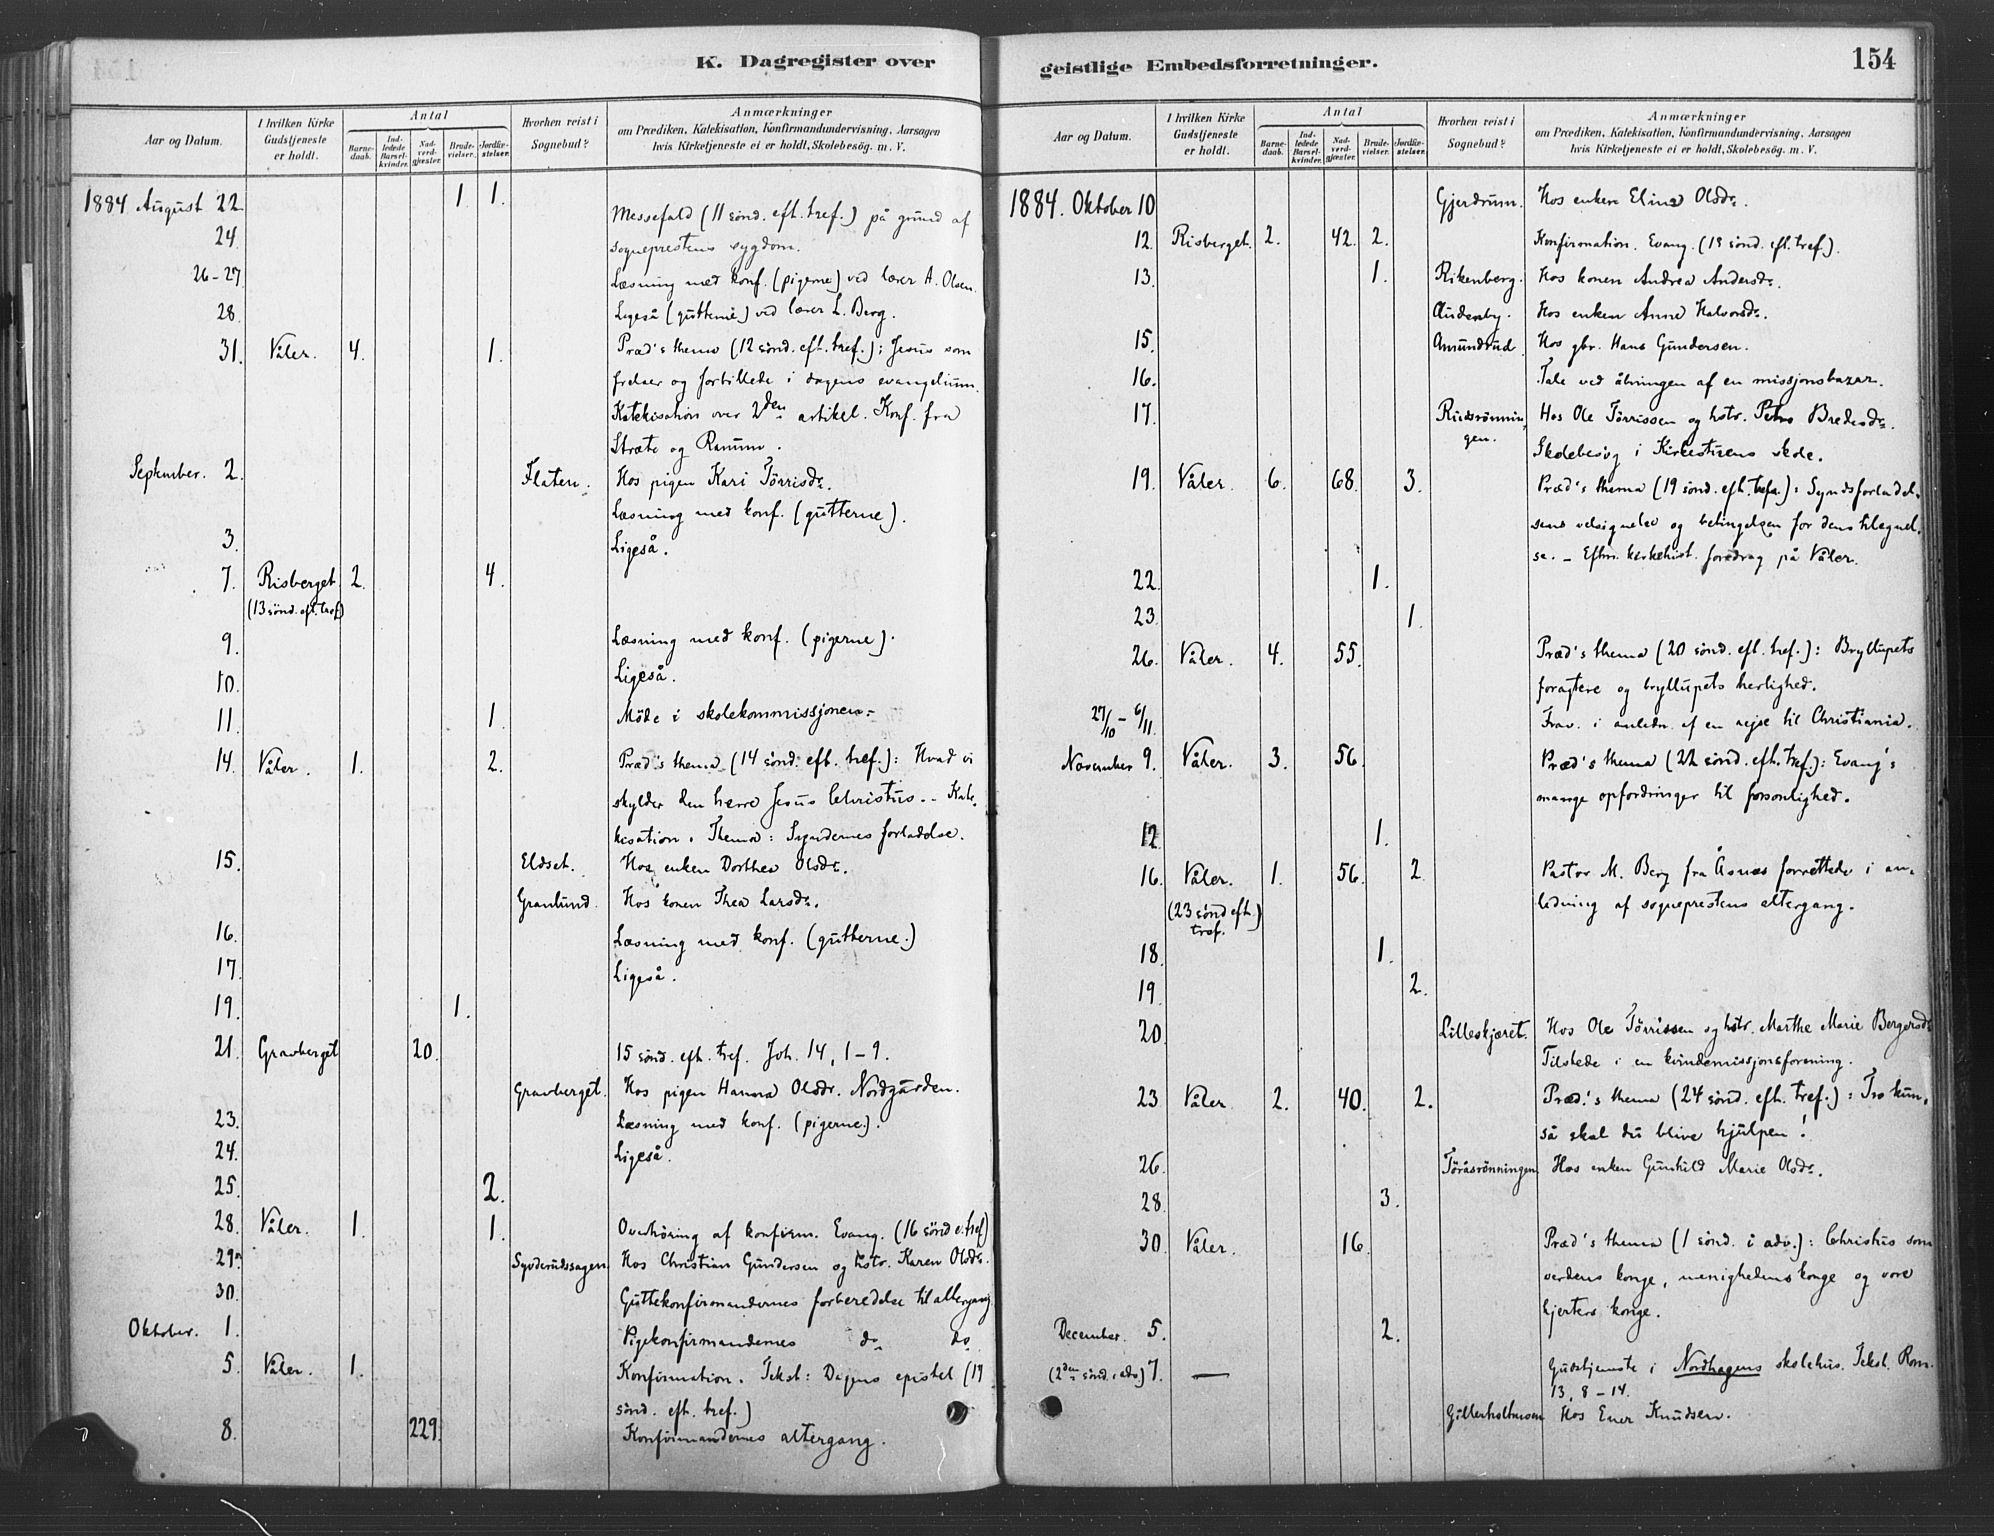 K. Dagregister over
Aar og Datum.
I hvilken Kirke Gudstjeneste er holdt.
Antal
Barnedaab.
Indledede Barselkvinder.
Nadverdgjæster.
Brudevielser.
Jordfæstelser.
Hvorhen reist i Sognebud?
Anmærkninger
om Prædiken, Katekisation, Konfirmandundervisning, Aarsagen
hvis Kirketjeneste ei er holdt, Skolebesøg. m. V.
1884 August 22. 1. 1.
24. Messefald (11 sønd. eft. tref.) på grund af
sogneprestens sygdom.
26-27 Læsning med konf. (pigerne) ved lærer A. Olsen.
28. Ligeså (gutterne) ved lærer L. Berg.
31. Våler. 4. 1. Præd's thema (12 sønd. eft. tref.): Jesus som
frelser og forbillede i dagens evangelium.
Katekisation over 2den artikel. Konf. fra
Stræte og Ramum.
September. 2. Flaten. Hos pigen Kari Tørrisdr.
Læsning med konf. (gutterne).
3. Ligeså.
7. Risberget 2. 4.
(13 sønd. eft. tref.)
9. Læsning med konf. (pigerne).
10. Ligeså.
11. 1. Møde i skolekommissjonen.
14. Våler. 1. 2. Præd's thema (14 sønd. eft. tref.): Hvad vi
skylder den herre Jesus Christus. - Kate-
kisation. Thema: Syndernes forladelse.
15. Eldset. Hos enken Dorthea Olsdr.
Granlund. Hos konen Thea Larsdr.
16. Læsning med konf. (gutterne.)
17. Ligeså.
19. 1.
21. Gravberget 20. 15 sønd. eft. tref. Joh. 14, 1-9.
Gravberget. Hos pigen Hanna Olsdr. Nordgården.
23. Læsning med konf. (pigerne.).
24. Ligeså.
25. 2.
28. Våler. 1. 1. Overhøring af konfirm. Evang. (16 sønd e. tref)
29. Syvderudssagen Hos Christian Gundersen og hstr. Karen Olsdr.
30. Guttekonfirmandernes forberedelse til altergang
Oktober. 1. Pigekonfirmandernes do do
5. Våler. 1. Konfirmation. Tekst: Dagens epistel (17
sønd. eft. tref.)
8. 229. Konfirmandernes altergang.
geistlige Embedsforretninger.
154
Aar og Datum.
I hvilken Kirke Gudstjeneste er holdt.
Antal
Barnedaab.
Indledede Barselkvinder.
Nadverdgjæster.
Brudevielser.
Jordfæstelser.
Hvorhen reist i Sognebud?
Anmærkninger
om Prædiken, Katekisation, Konfirmandundervisning, Aarsagen
hvis Kirketjeneste ei er holdt, Skolebesøg. m. V.
1884. Oktober 10 Gjerdrum. Hos enken Elina Olsdr.
12. Risberget. 2. 42. 2. Konfirmation. Evang. (18 sønd. eft. tref.).
13. 1. Rikenberg. Hos konen Andrea Andersdr.
Audenby. Hos enken Anne Halvorsdr.
15. Amundrud. Hos gbr. Hans Gundersen.
16. Tale ved åbningen af en missjonsbazar.
17. Rudsrønnin- Hos Ole Tørrissen og hstr. Petra Bredesdr.
gen. Skolebesøg i Kirkestuens skole.
19. Våler. 6. 68. 3. Præd's thema (19 sønd. eft. tref.): Syndsforladel-
sens velsignelse og betingelsen for dens tilegnel-
se. - Efterm. kirkehist. foredrag på Våler.
22. 1.
23. 1.
26. Våler. 4. 55. Præd's thema (20 sønd. eft. tref.): Bryllupets
foragtere og bryllupets herlighed.
27/10 - 6/11. Frav. i anledn. af en rejse til Christiania.
November 9. Våler. 3. 56. Præd's thema (22 sønd. eft. tref.): Evang's
mange opfordringer til forsonlighed.
12 1.
16. Våler. 1. 56. 2. Pastor M. Berg fra Åsnæs forrettede i an-
(23 sønd eft. tref. ledning af sogneprestens altergang.
18. 1.
19. 2.
20. Lilleskjæret. Hos Ole Tørrissen og hstr. Marthe Marie Bergersdr
Tilstede i en kvindemissjonsforening.
23 Våler. 2. 40. 2. Præd.'s thema (24 sønd. eft. tref.): Tro kun,
så skal du blive hjulpen!
26. Töråsrønningen Hos enken Gunhild Marie Olsdr.
28. 3.
30. Våler. 16. Præd's thema (1 sønd. i adv.): Christus som
verdens konge, menighedens konge og vore
hjerters konge.
December. 5. 2.
(2den sønd. i adv.) 7. — Gudstjeneste i Nordhagens skolehus. Tekst. Rom.
13, 8-14.
Hos Ener Knudsen.